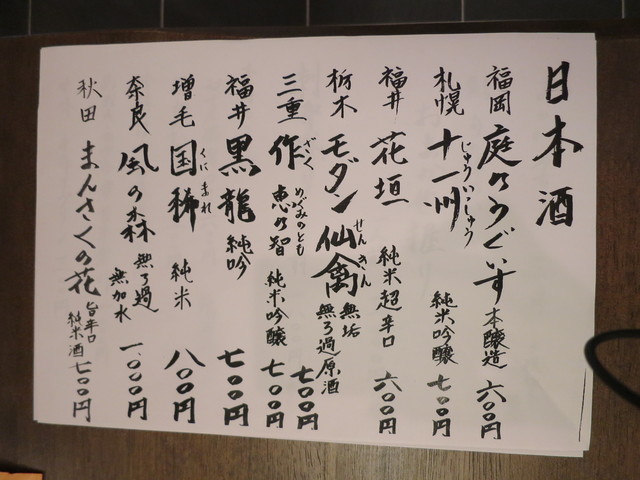 日本酒
福岡 庭のうぐいす 本醸造 六〇〇円
札幌 十一州 じゅういっしゅう 純米吟醸 七〇〇円
福井 花垣 純米超辛口 六〇〇円
栃木 モダン仙禽 せんきん 無垢 無ろ過原酒 七〇〇円
三重 作 ざく 恵の智 めぐみのとも 純米吟醸 七〇〇円
福井 黒龍 純吟 七〇〇円
増毛 国稀 くにまれ 純米 八〇〇円
奈良 風の森 無ろ過 無加水 一、〇〇〇円
秋田 まんさくの花 旨辛口 純米酒 七〇〇円